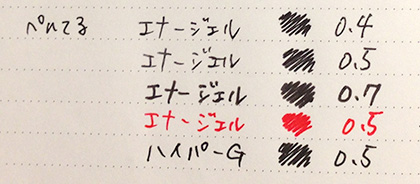 ぺんてる エナージェル 0.4
エナージェル 0.5
エナージェル 0.7
エナージェル 0.5
ハイパーG 0.5